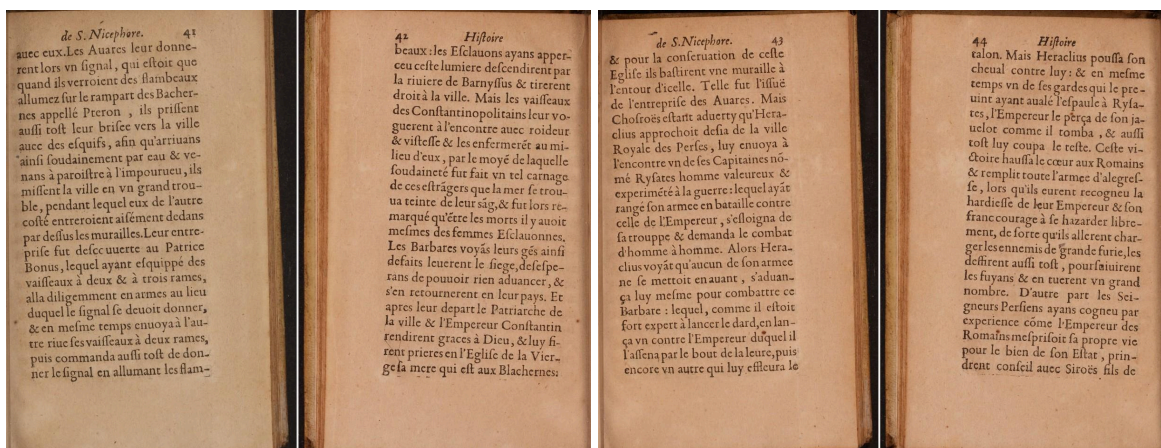 de S. Nicephore. 41
auec eux. Les Auares leur donne-
rent lors vn ſignal, qui eſtoit que
quand ils verroient des flambeaux
allumez ſur le rampart des Bacher-
nes appellé Pteron, ils priſſent
auſſi toſt leur briſee vers la ville
auec des eſquifs, afin qu'arriuans
ainſi ſoudainement par eau & ve-
nans à paroiſtre à l'impourueu, ils
miſſent la ville en vn grand trou-
ble, pendant lequel eux de l'autre
coſté entreroient aiſément dedans
par deſſus les murailles. Leur entre-
priſe fut deſcouuerte au Patrice
Bonus, lequel ayant eſquippé des
vaiſſeaux à deux & à trois rames,
alla diligemment en armes au lieu
duquel le ſignal ſe deuoit donner,
& en meſme temps enuoya à l'au-
tre riue ſes vaiſſeaux à deux rames,
puis commanda auſſi toſt de don-
ner le ſignal en allumant les flam-
42 Hiſtoire
beaux: les Eſclauons ayans apper-
ceu ceſte lumiere deſcendirent par
la riuiere de Barnyſſus & tirerent
droit à la ville. Mais les vaiſſeaux
des Conſtantinopolitains leur vo-
guerent à l'encontre auec roideur
& viſteſſe & les enfermerẽt au mi-
lieu d'eux, par le moyẽ de laquelle
ſoudaineté fut fait vn tel carnage
de ces eſtrãgers que la mer ſe trou-
ua teinte de leur ſãg, & fut lors re-
marqué qu'ẽtre les morts il y auoit
meſmes des femmes Eſclauonnes.
Les Barbares voyãs leurs gẽs ainſi
defaits leuerent le ſiege, deſeſpe-
rans de pouuoir rien aduancer, &
s'en retournerent en leur pays. Et
apres leur depart le Patriarche de
la ville & l'Empereur Conſtantin
rendirent graces à Dieu, & luy fi-
rent prieres en l'Egliſe de la Vier-
ge ſa mere qui eſt aux Blachernes:
de S. Nicephore. 43
& pour la conſeruation de ceſte
Egliſe ils baſtirent vne muraille à
l'entour d'icelle. Telle fut l'iſſuë
de l'entrepriſe des Auares. Mais
Choſroës eſtant aduerty qu'Hera-
clius approchoit deſia de la ville
Royale des Perſes, luy enuoya à
l'encontre vn de ſes Capitaines nõ-
mé Ryſates homme valeureux &
experimẽté à la guerre: lequel ayãt
rangé ſon armee en bataille contre
celle de l'Empereur, s'eſloigna de
ſa trouppe & demanda le combat
d'homme à homme. Alors Hera-
clius voyãt qu'aucun de ſon armee
ne ſe mettoit en auant, s'aduan-
ça luy meſme pour combattre ce
Barbare: lequel, comme il eſtoit
fort expert à lancer le dard, en lan-
ça vn contre l'Empereur duquel il
l'aſſena par le bout de la leure, puis
encore vn autre qui luy effleura le
44 Hiſtoire
talon. Mais Heraclius pouſſa ſon
cheual contre luy: & en meſme
temps vn de ſes gardes qui le pre-
uint ayant aualé l'eſpaule à Ryſa-
tes, l'Empereur le perça de ſon ja-
uelot comme il tomba, & auſſi
toſt luy coupa le teſte. Ceſte vi-
ctoire hauſſa le cœur aux Romains
& remplit toute l'armee d'alegreſ-
ſe, lors qu'ils eurent recogneu la
hardieſſe de leur Empereur & ſon
franc courage à ſe hazarder libre-
ment, de ſorte qu'ils allerent char-
ger les ennemis de grande furie, les
deffirent auſſi toſt, pourſuiuirent
les fuyans & en tuerent vn grand
nombre. D'autre part les Sei-
gneurs Perſiens ayans cogneu par
experience cõme l'Empereur des
Romains meſpriſoit ſa propre vie
pour le bien de ſon Eſtat, prin-
drent conſeil auec Siroës fils de